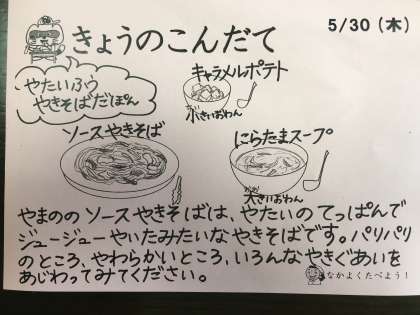 きょうのこんだて
5/30(木)
やたいふう
やきそばだぽん
キャラメルポテト
小さいおわん
ソースやきそば
にらたまスープ
大きいおわん
やまののソースやきそばは、やたいのてっぱんで
ジュージューやいたみたいなやきそばです。パリパリ
のところ、やわらかいところ、いろんなやきぐあいを
あじわってみてください。
なかよくたべよう!